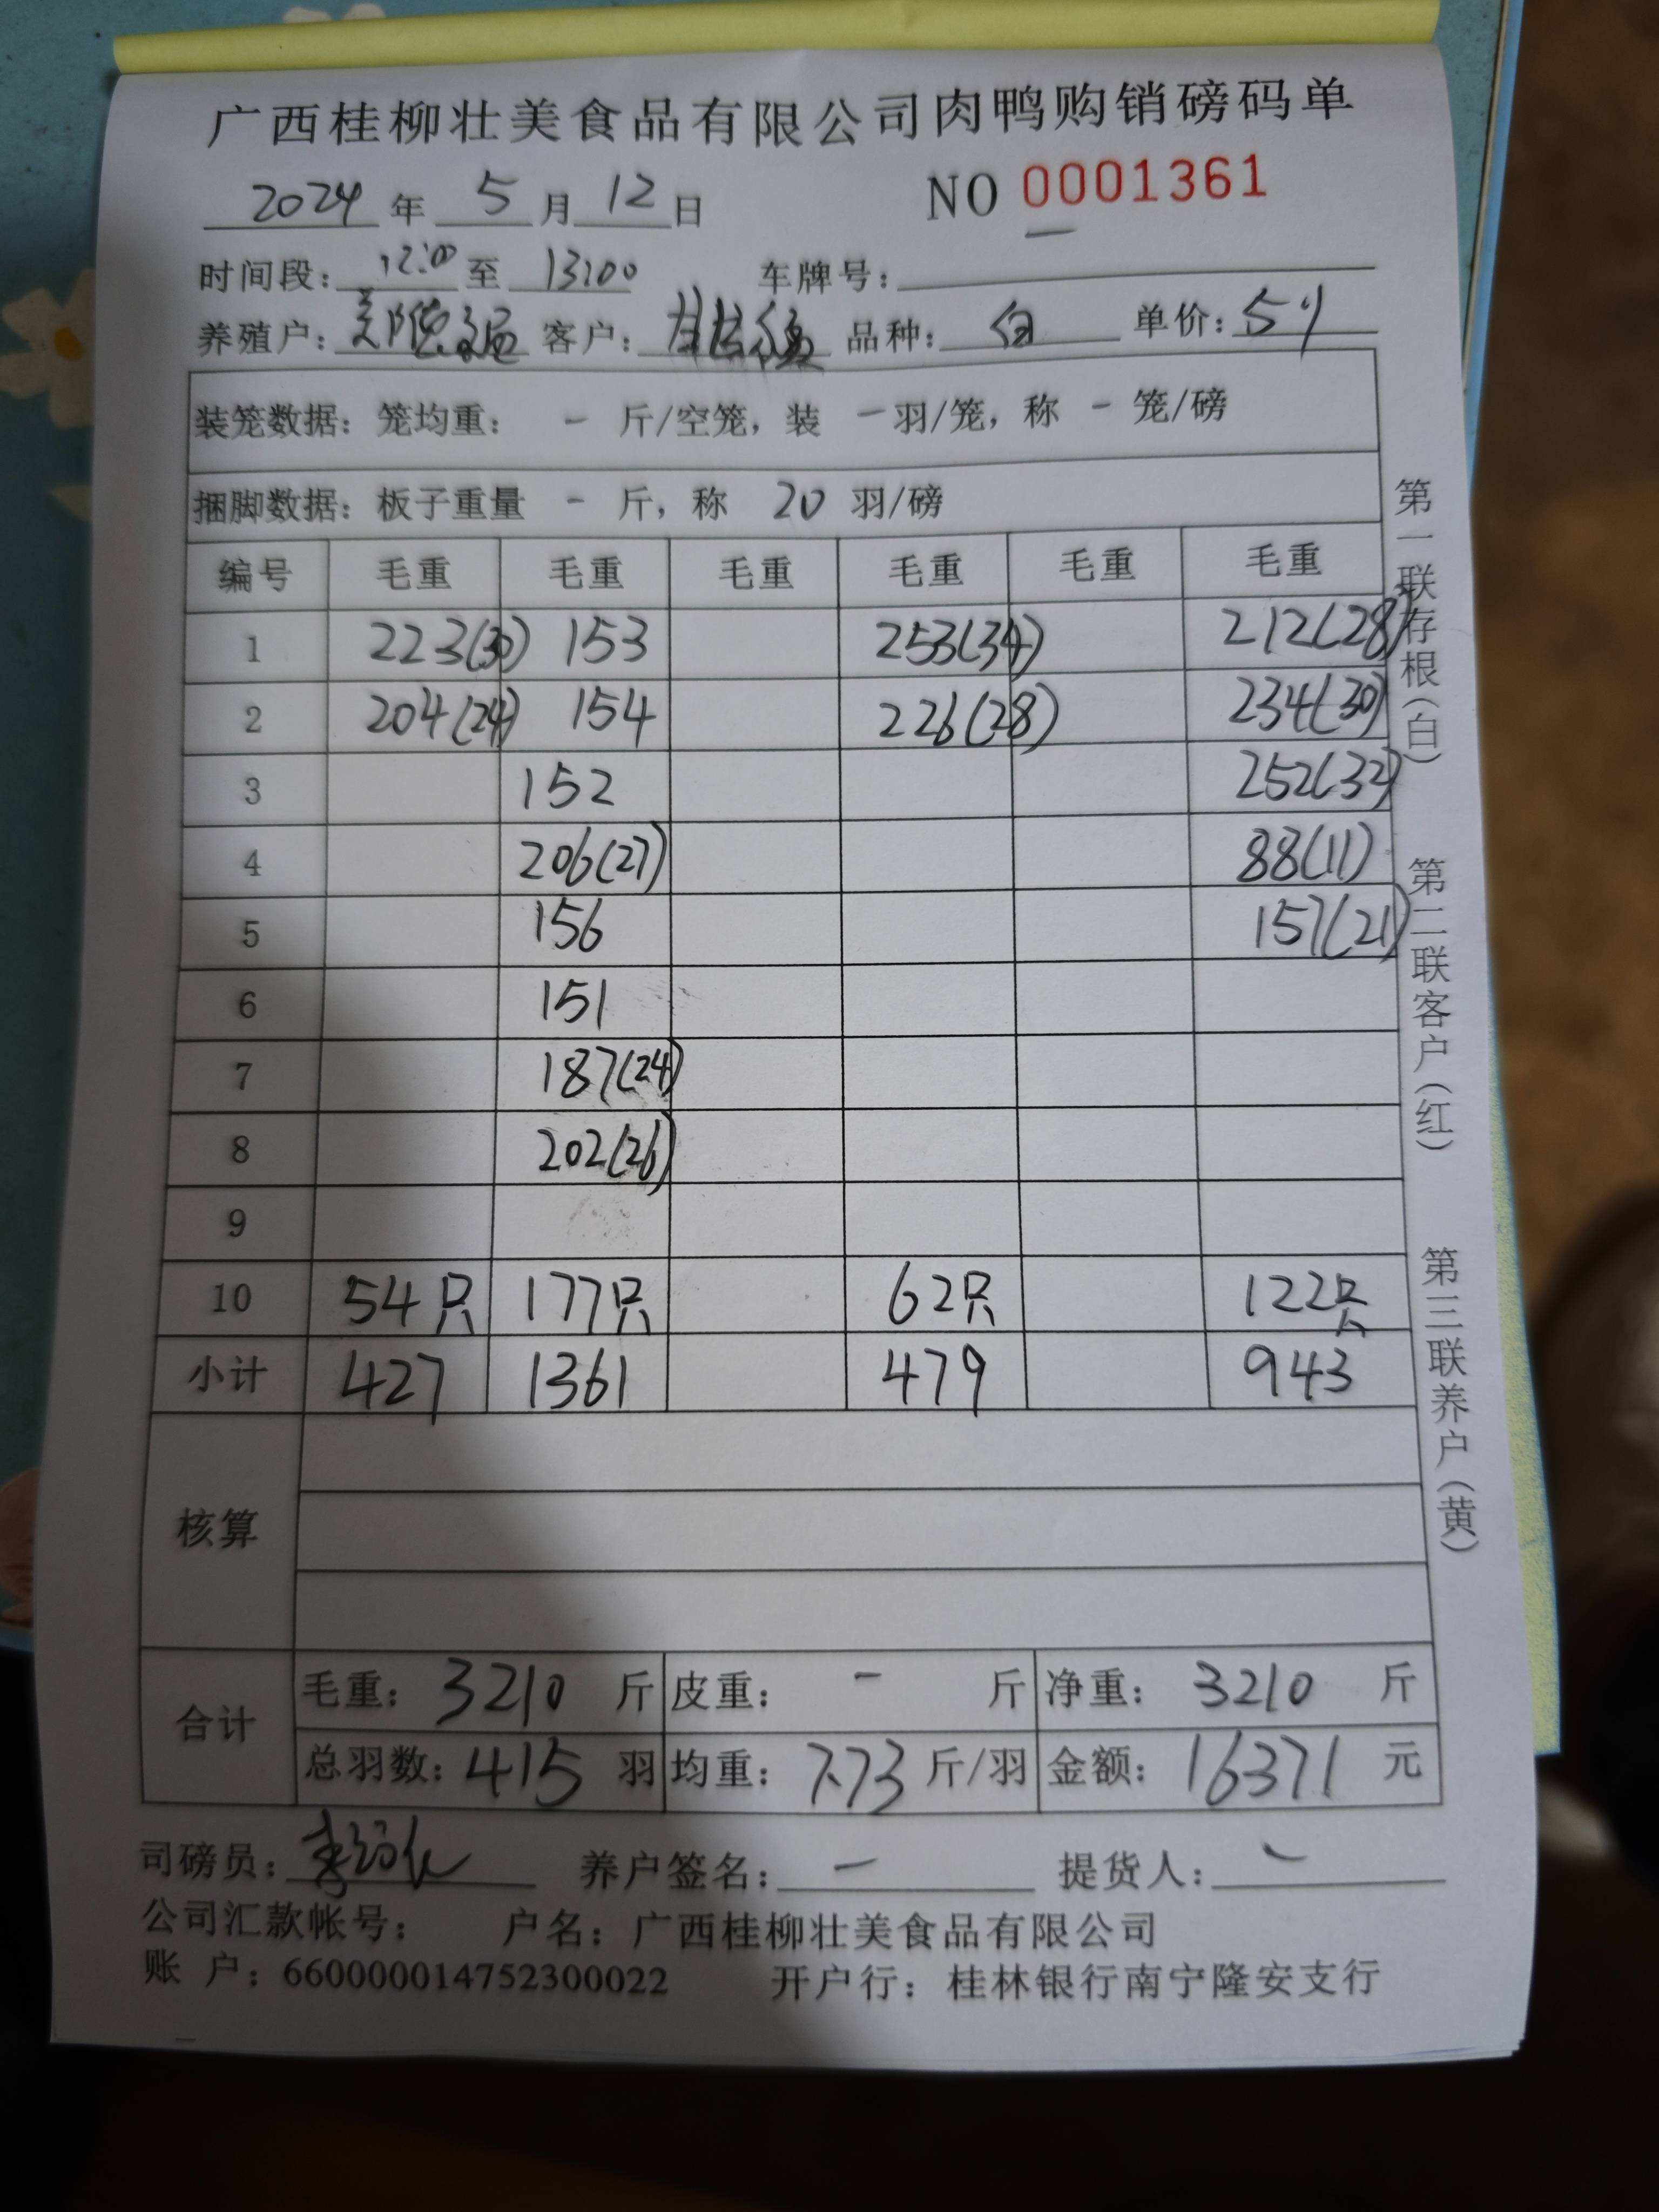 广西桂柳壮美食品有限公司肉鸭购销磅码单
2024 年 5 月 12 日 NO 0001361
时间段: 12:00 至 13:00 车牌号:
养殖户: 客户: 品种: 白 单价: 5.1
装笼数据: 笼均重: - 斤/空笼, 装 - 羽/笼, 称 - 笼/磅
捆脚数据: 板子重量 - 斤, 称 20 羽/磅
编号 毛重 毛重 毛重 毛重 毛重 毛重
1 223(30) 153 253(34) 212(28)
2 204(24) 154 226(28) 234(30)
3 152 252(32)
4 206(27) 88(11)
5 156 157(21)
6 151
7 187(24)
8 202(26)
9
10 54只 177只 62只 122只
小计 427 1361 479 943
核算
合计
毛重: 3210 斤 皮重: - 斤 净重: 3210 斤
总羽数: 415 羽 均重: 7.73 斤/羽 金额: 16371 元
司磅员: 养户签名: - 提货人: -
公司汇款帐号: 户名: 广西桂柳壮美食品有限公司
账 户: 660000014752300022 开户行: 桂林银行南宁隆安支行
第一联存根(白) 第二联客户(红) 第三联养户(黄)